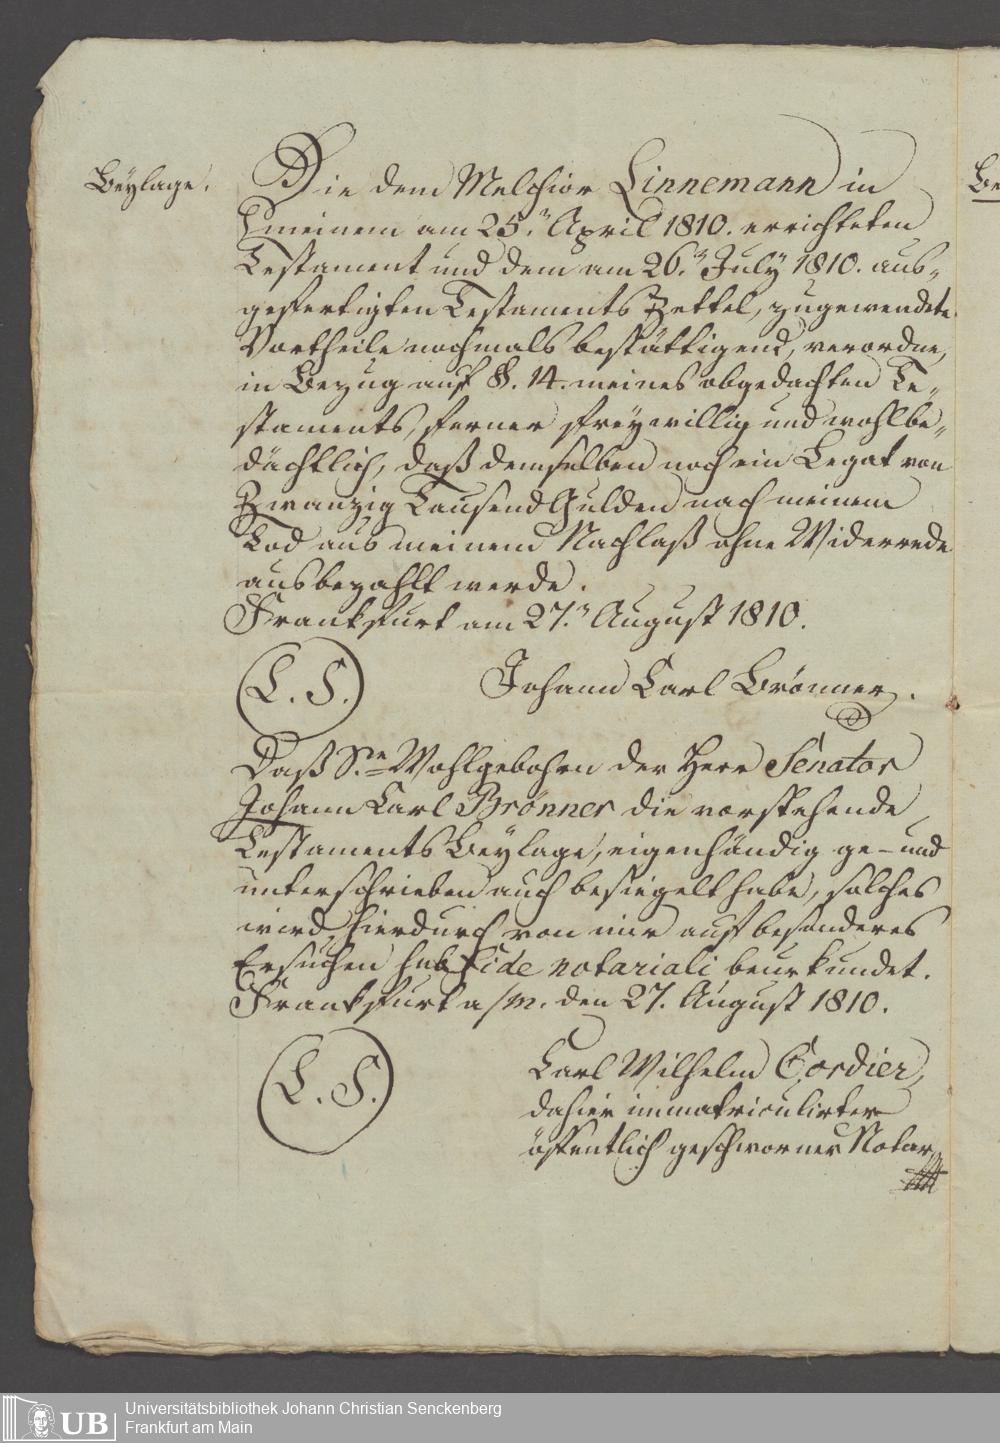 Beylage.
Die dem Melchior Linnemann in
meinem am 25.n April 1810. errichteten
Testament und dem am 26.n July 1810. aus-
gefertigten Testaments Zettel, zugewendete
Vortheile nochmals bestättigend, verordne,
in Bezug auf §. 14. meines obgedachten Te-
staments, ferner freywillig und wohlbe-
dächtlich, daß demselben noch ein Legat von
Zwanzig Tausend Gulden nach meinem
Tod aus meinem Nachlaß ohne Widerrede
ausbezahlt werde.
Frankfurt am 27.n August 1810.
L. S.
Johann Carl Brönner.
Daß Sr. Wohlgebohrn der Herr Senator
Johann Carl Brönner die vorstehende
Testaments Beylage, eigenhändig ge- und
unterschrieben auch besiegelt habe, solches
wird hierdurch von mir auf besonderes
Ersuchen sub fide notariali beurkundet.
Frankfurt a/m. den 27. August 1810.
L. S.
Carl Wilhelm Cordier,
dahier immatriculirter
öffentlich geschworner Notar.
Be
UB
Universitätsbibliothek Johann Christian Senckenberg
Frankfurt am Main